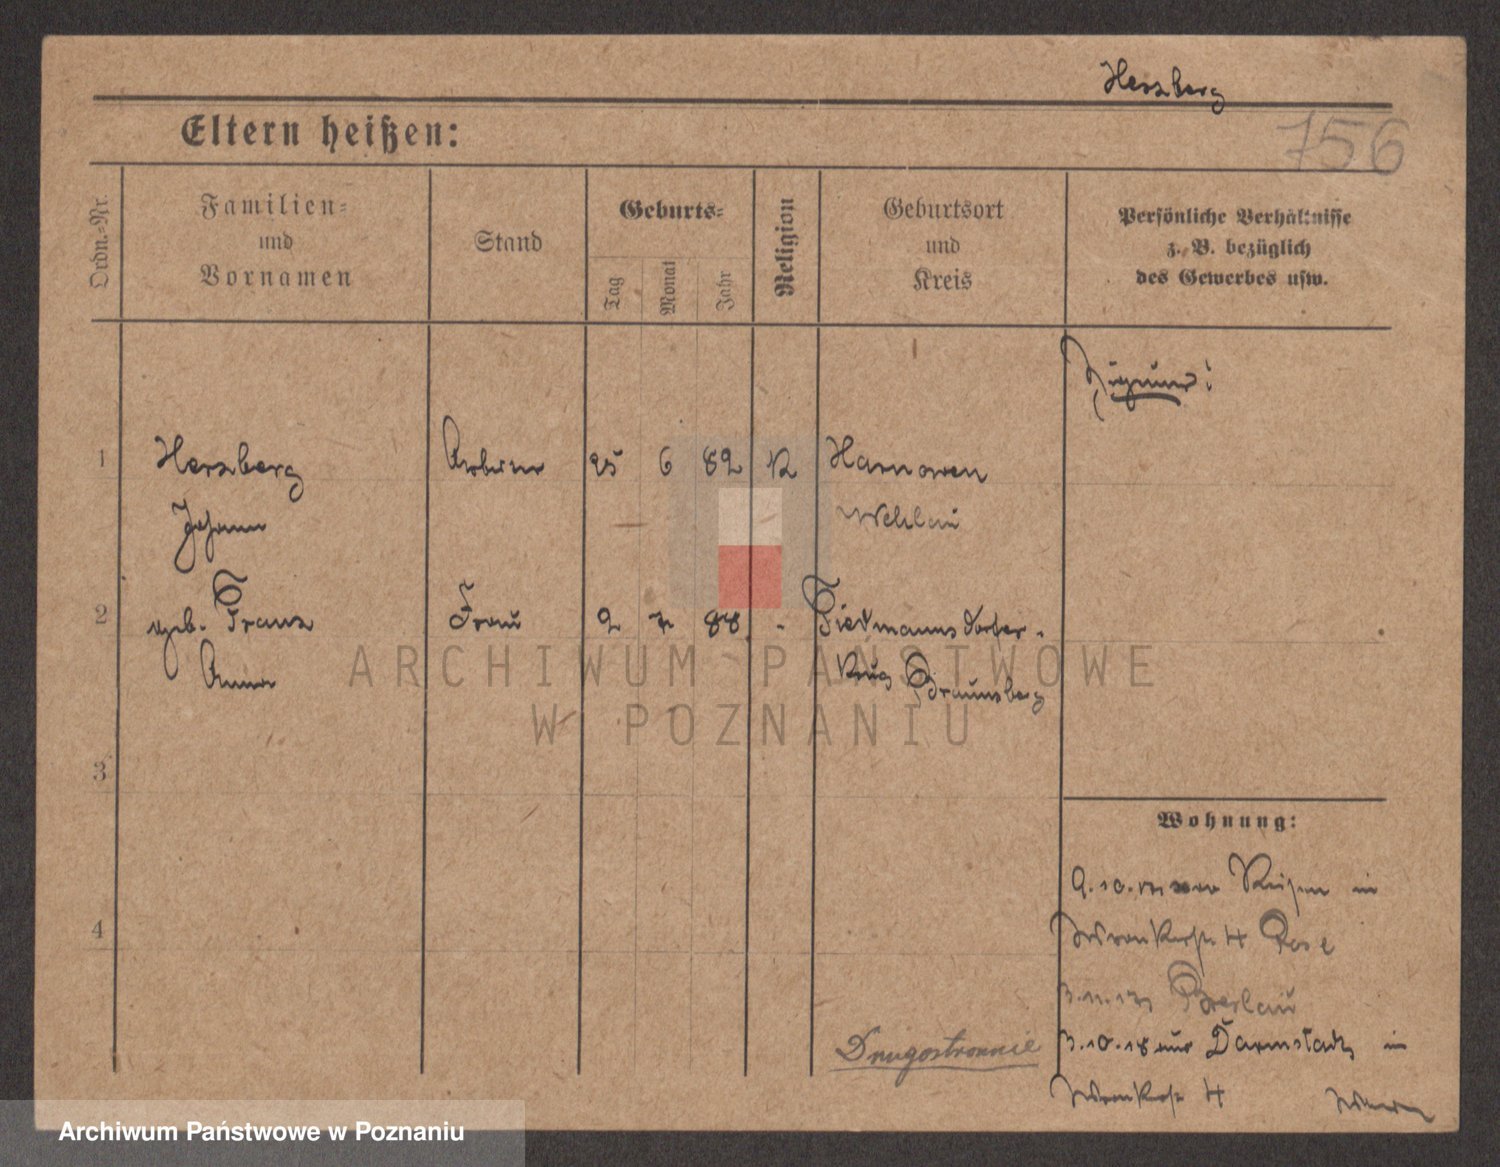 Herzberg
756
Eltern heißen:
Ordn.-Nr.
Familien-
und
Vornamen
Stand
Geburts-
Tag
Monat
Jahr
Religion
Geburtsort
und
Kreis
Persönliche Verhältnisse
z. B. bezüglich
des Gewerbes usw.
1 Herzberg Arbeiter 25 6 82 K Hannover
Johann Wehlau
2 geb. Franz Frau 2 7 88 Tiedmannsdorfer-
Anna Krug Braunsberg
ARCHIWUM PAŃSTWOWE
W POZNANIU
3
4
Wohnung:
9.10. in
4 Posen
Breslau
3.10.18 aus Darmstadt in
4
Drugostronnie
Archiwum Państwowe w Poznaniu